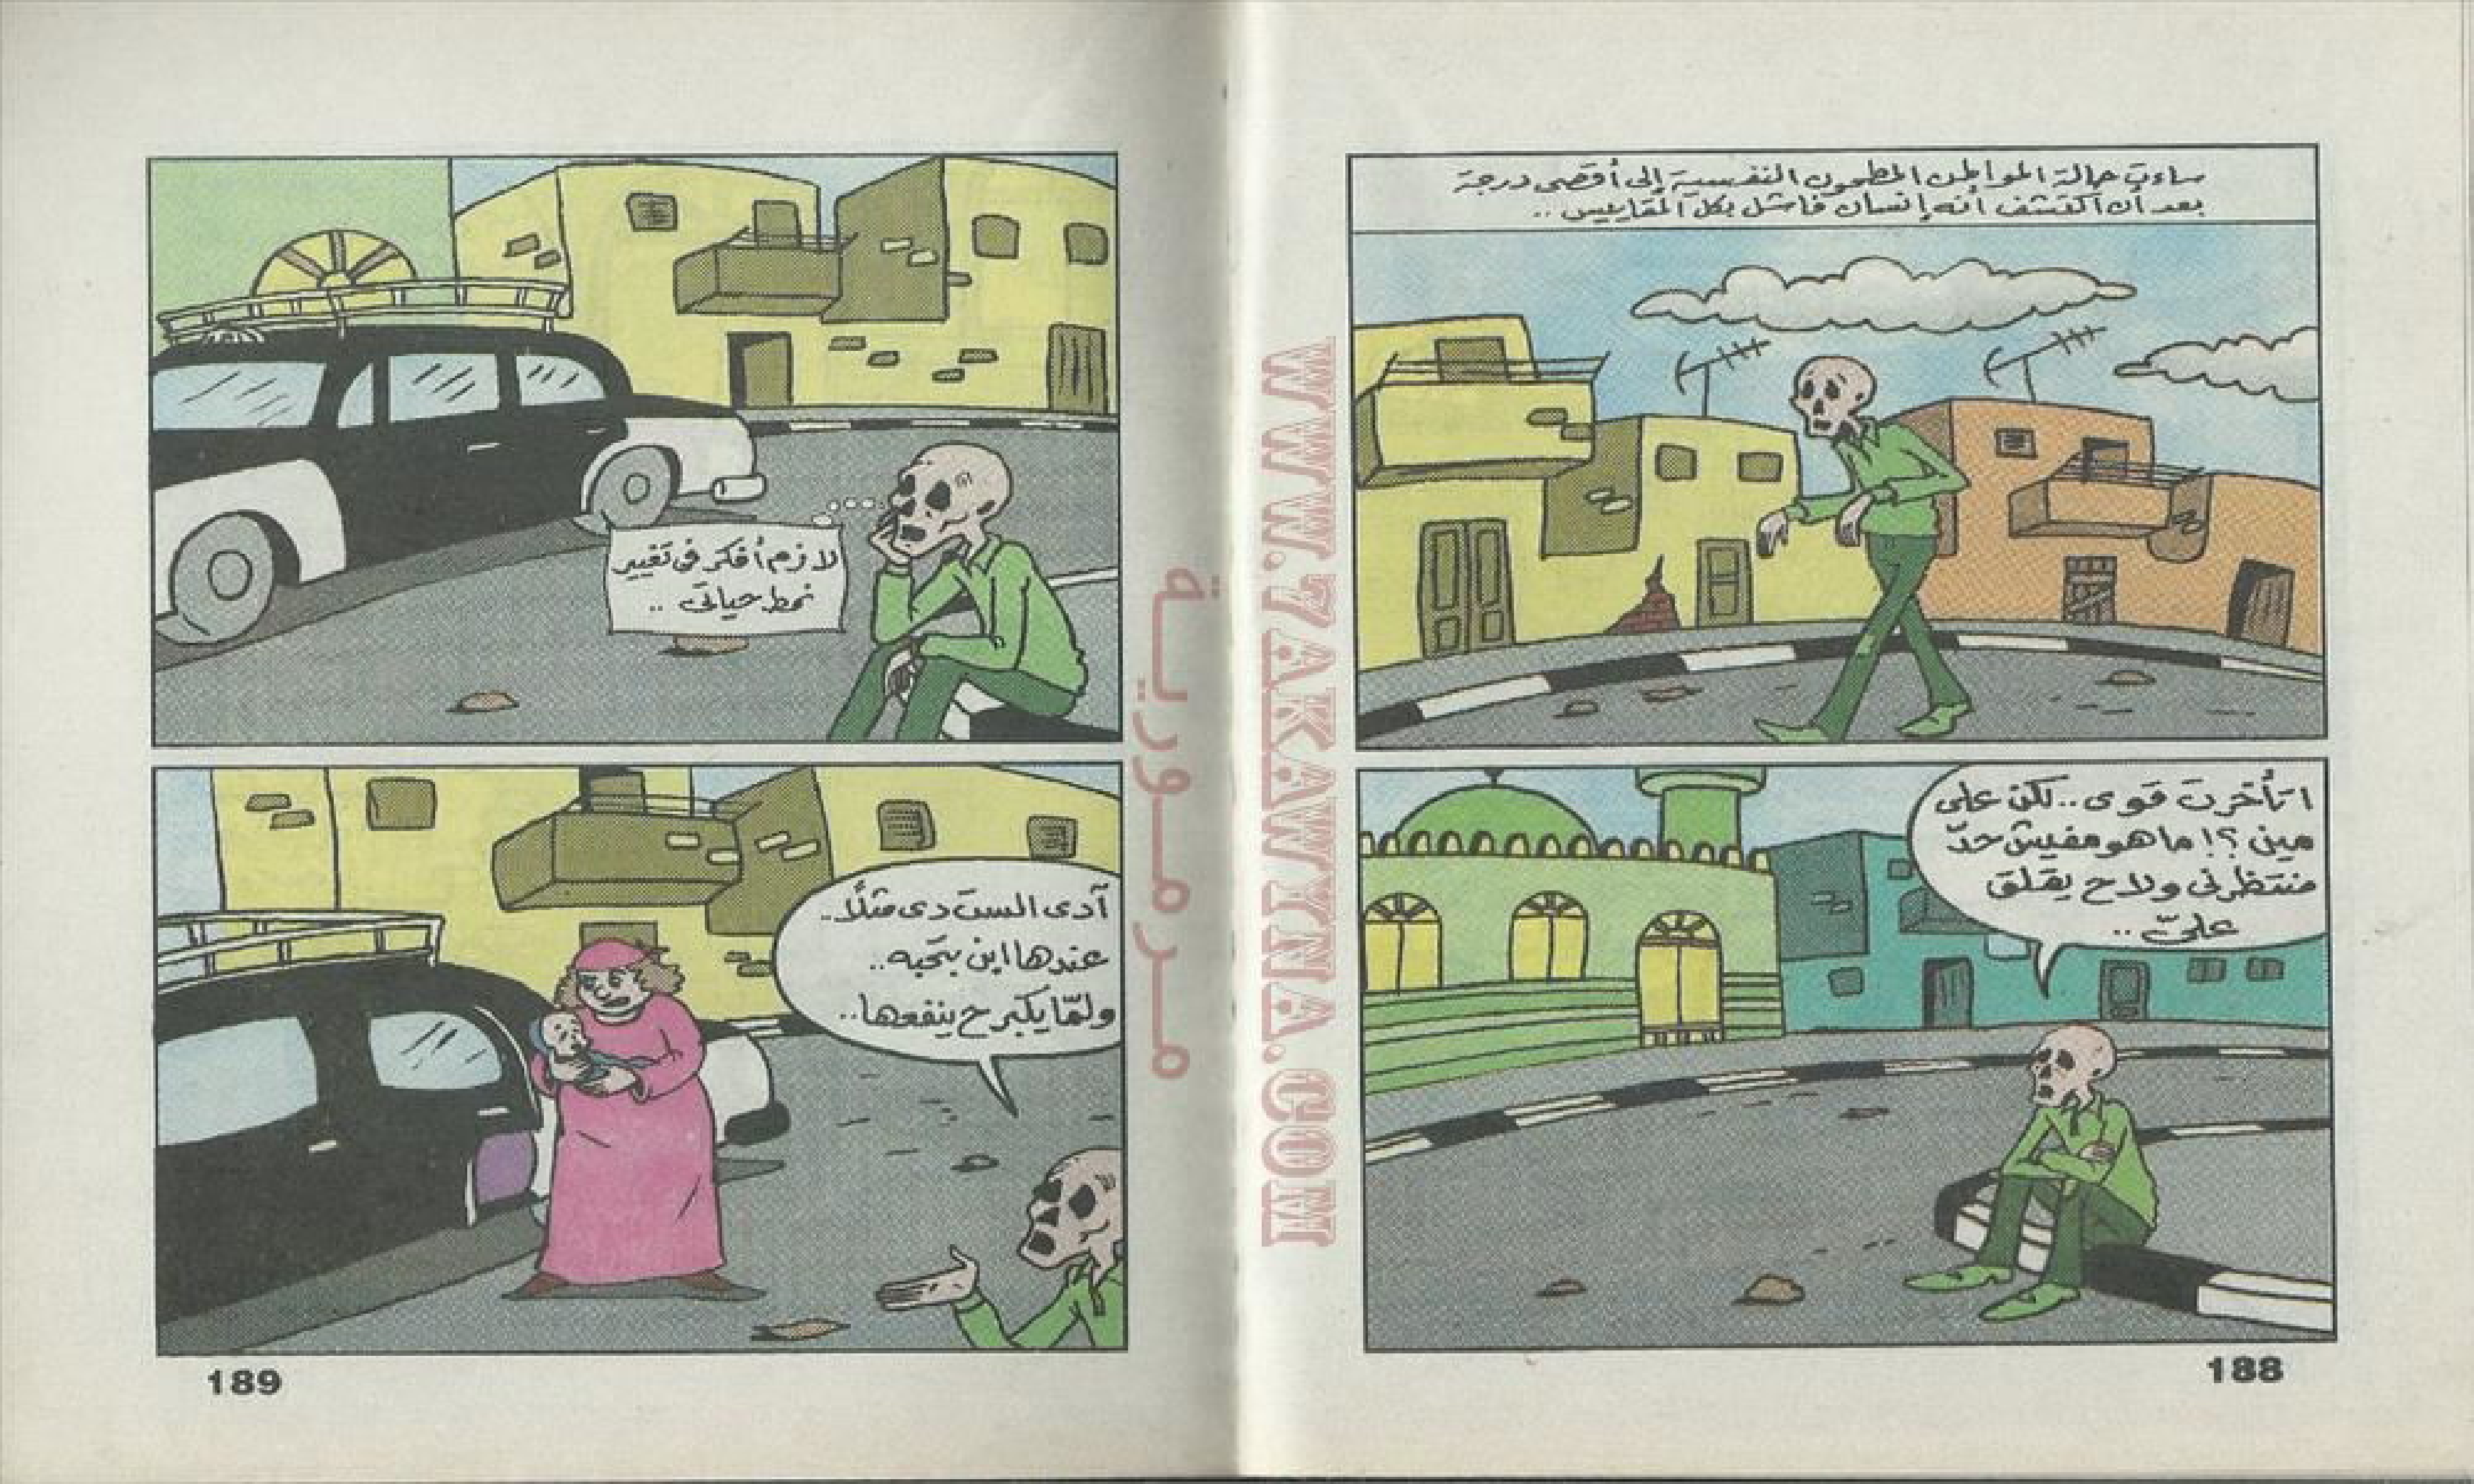 ساءت حالة المواطن المطحون النفسية إلى أقصى درجة
بعد أن اكتشف أنه إنسان فاشل بكل المقاييس ..
اتأخرت قوى .. لكن على
مين ؟! ما هو مفيش حدّ
منتظرنى ولاح يقلق
علىّ ..
188
لازم أفكر فى تغيير
نمط حياتى ..
آدى الست دى مثلاً ..
عندها ابن بتحبه ..
ولمّا يكبر ح ينفعها ..
189
WWW.7AKAWYNA.COM
مرمورية